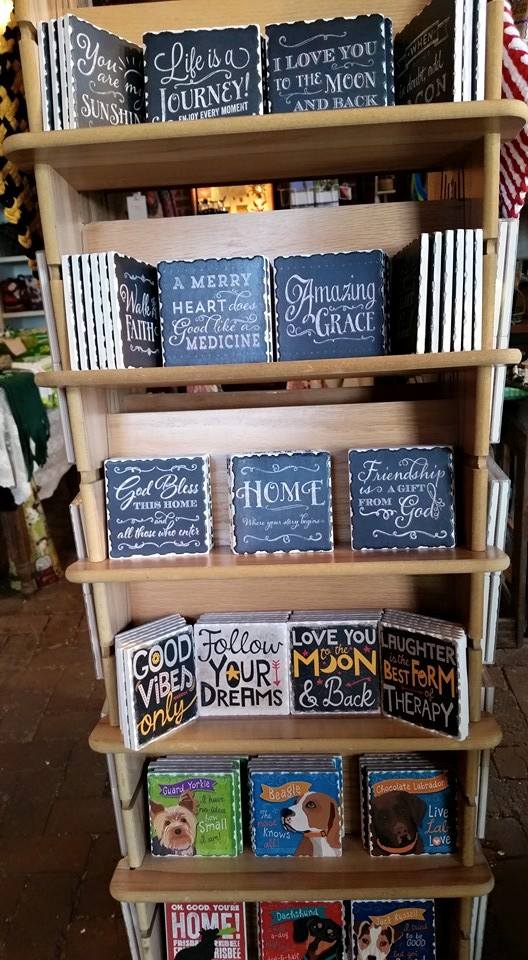 You
are my
SUNSHIN
Life is a
JOURNEY!
ENJOY EVERY MOMENT
I LOVE YOU
TO THE MOON
AND BACK
WHEN
in doubt, add
Walk
FAITH
A MERRY
HEART does
Good like a
MEDICINE
Amazing
GRACE
God Bless
THIS HOME
and
all those who enter
HOME
Where your story begins
Friendship
is A GIFT
FROM God
GOOD
ViBES
only
Follow
YOUR
DREAMS
LOVE YOU
to the
MOON
& Back
LAUGHTER
is the
BEST FORM
of
THERAPY
Guard Yorkie
I have
no idea
how
Small
I am!
Beagle
The
nose
Knows
all!
Chocolate Labrador
Live
Lab
Love
OH, GOOD, YOU'RE
HOME!
FRISBEE
Dachshund
Jack Russell
I tried
to be
GOOD
but got